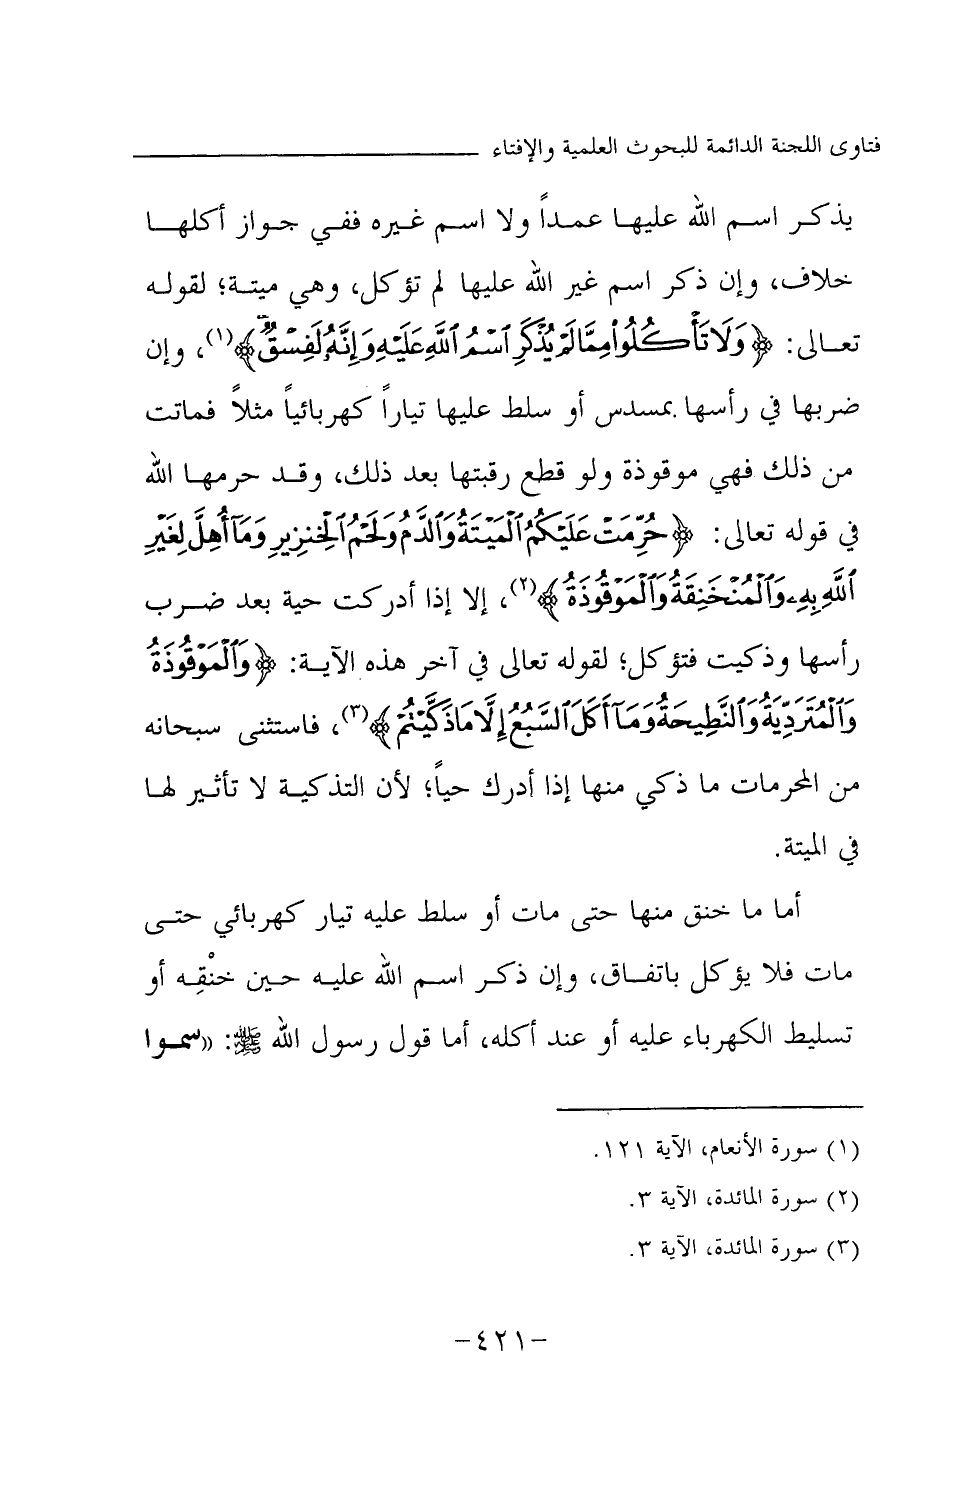 فتاوى اللجنة الدائمة للبحوث العلمية والإفتاء
يذكر اسم الله عليها عمداً ولا اسم غيره ففي جواز أكلها
خلاف، وإن ذكر اسم غير الله عليها لم تؤكل، وهي ميتة؛ لقوله
تعالى: ﴿وَلَا تَأْكُلُوا۟ مِمَّا لَمْ يُذْكَرِ ٱسْمُ ٱللَّهِ عَلَيْهِ وَإِنَّهُۥ لَفِسْقٌ﴾(١)، وإن
ضربها في رأسها بمسدس أو سلط عليها تياراً كهربائياً مثلاً فماتت
من ذلك فهي موقوذة ولو قطع رقبتها بعد ذلك، وقد حرمها الله
في قوله تعالى: ﴿حُرِّمَتْ عَلَيْكُمُ ٱلْمَيْتَةُ وَٱلدَّمُ وَلَحْمُ ٱلْخِنزِيرِ وَمَآ أُهِلَّ لِغَيْرِ
ٱللَّهِ بِهِۦ وَٱلْمُنْخَنِقَةُ وَٱلْمَوْقُوذَةُ﴾(٢)، إلا إذا أدركت حية بعد ضرب
رأسها وذكيت فتؤكل؛ لقوله تعالى في آخر هذه الآية: ﴿وَٱلْمَوْقُوذَةُ
وَٱلْمُتَرَدِّيَةُ وَٱلنَّطِيحَةُ وَمَآ أَكَلَ ٱلسَّبُعُ إِلَّا مَا ذَكَّيْتُمْ﴾(٣)، فاستثنى سبحانه
من المحرمات ما ذكي منها إذا أدرك حياً؛ لأن التذكية لا تأثير لها
في الميتة.
أما ما خنق منها حتى مات أو سلط عليه تيار كهربائي حتى
مات فلا يؤكل باتفاق، وإن ذكر اسم الله عليه حين خنْقِه أو
تسليط الكهرباء عليه أو عند أكله، أما قول رسول الله ﷺ: «سموا
(١) سورة الأنعام، الآية ١٢١.
(٢) سورة المائدة، الآية ٣.
(٣) سورة المائدة، الآية ٣.
-٤٢١-